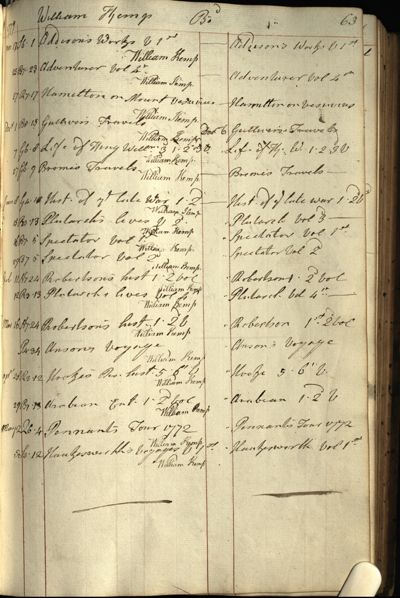 William Kemp Bd 63
1 Addison's Works V 1st Addison's Works V 1st
William Kemp
23 Adventurer Vol 4th Adventurer Vol 4th
William Kemp
17 Hamelton on Mount Vesuvius Hamelton on Vesuvius
William Kemp
13 Gullivers Travels Gullivers Travels
William Kemp
8 Life of Heny 1 2 3 V Life of Hy 1 2 3 V
William Kemp
9 Bromes Travels Bromes Travels
William Kemp
10 Hist. of ye late War 1 2 Hist of ye late war 1 2 V
William Kemp
13 Plutarch's lives V 3 Plutarch Vol 3
William Kemp
5 Spectator Vol 1st Spectator Vol 1st
William Kemp
5 Spectator Vol 2 Spectator Vol 2
William Kemp
24 Robertsons hist 1 2 Vol Robertson 1 2 Vol
William Kemp
13 Plutarchs lives Vol 4 Plutarch Vol 4th
William Kemp
24 Robertson's hist. 1 2 V Robertson 1st 2 Vol
William Kemp
34 Ansons Voyage Anson's Voyage
William Kemp
12 Hooke's Ro. hist 5 6 V Hooke 5 6 V.
William Kemp
13 Arabean Ent. 1 2 Vol Arabean 1 2 V
William Kemp
4 Pennants Tour 1772 Pennants Tour 1772
William Kemp
12 Hawkesworth's Voyages V 1st Hawkesworth Vol 1st
William Kemp